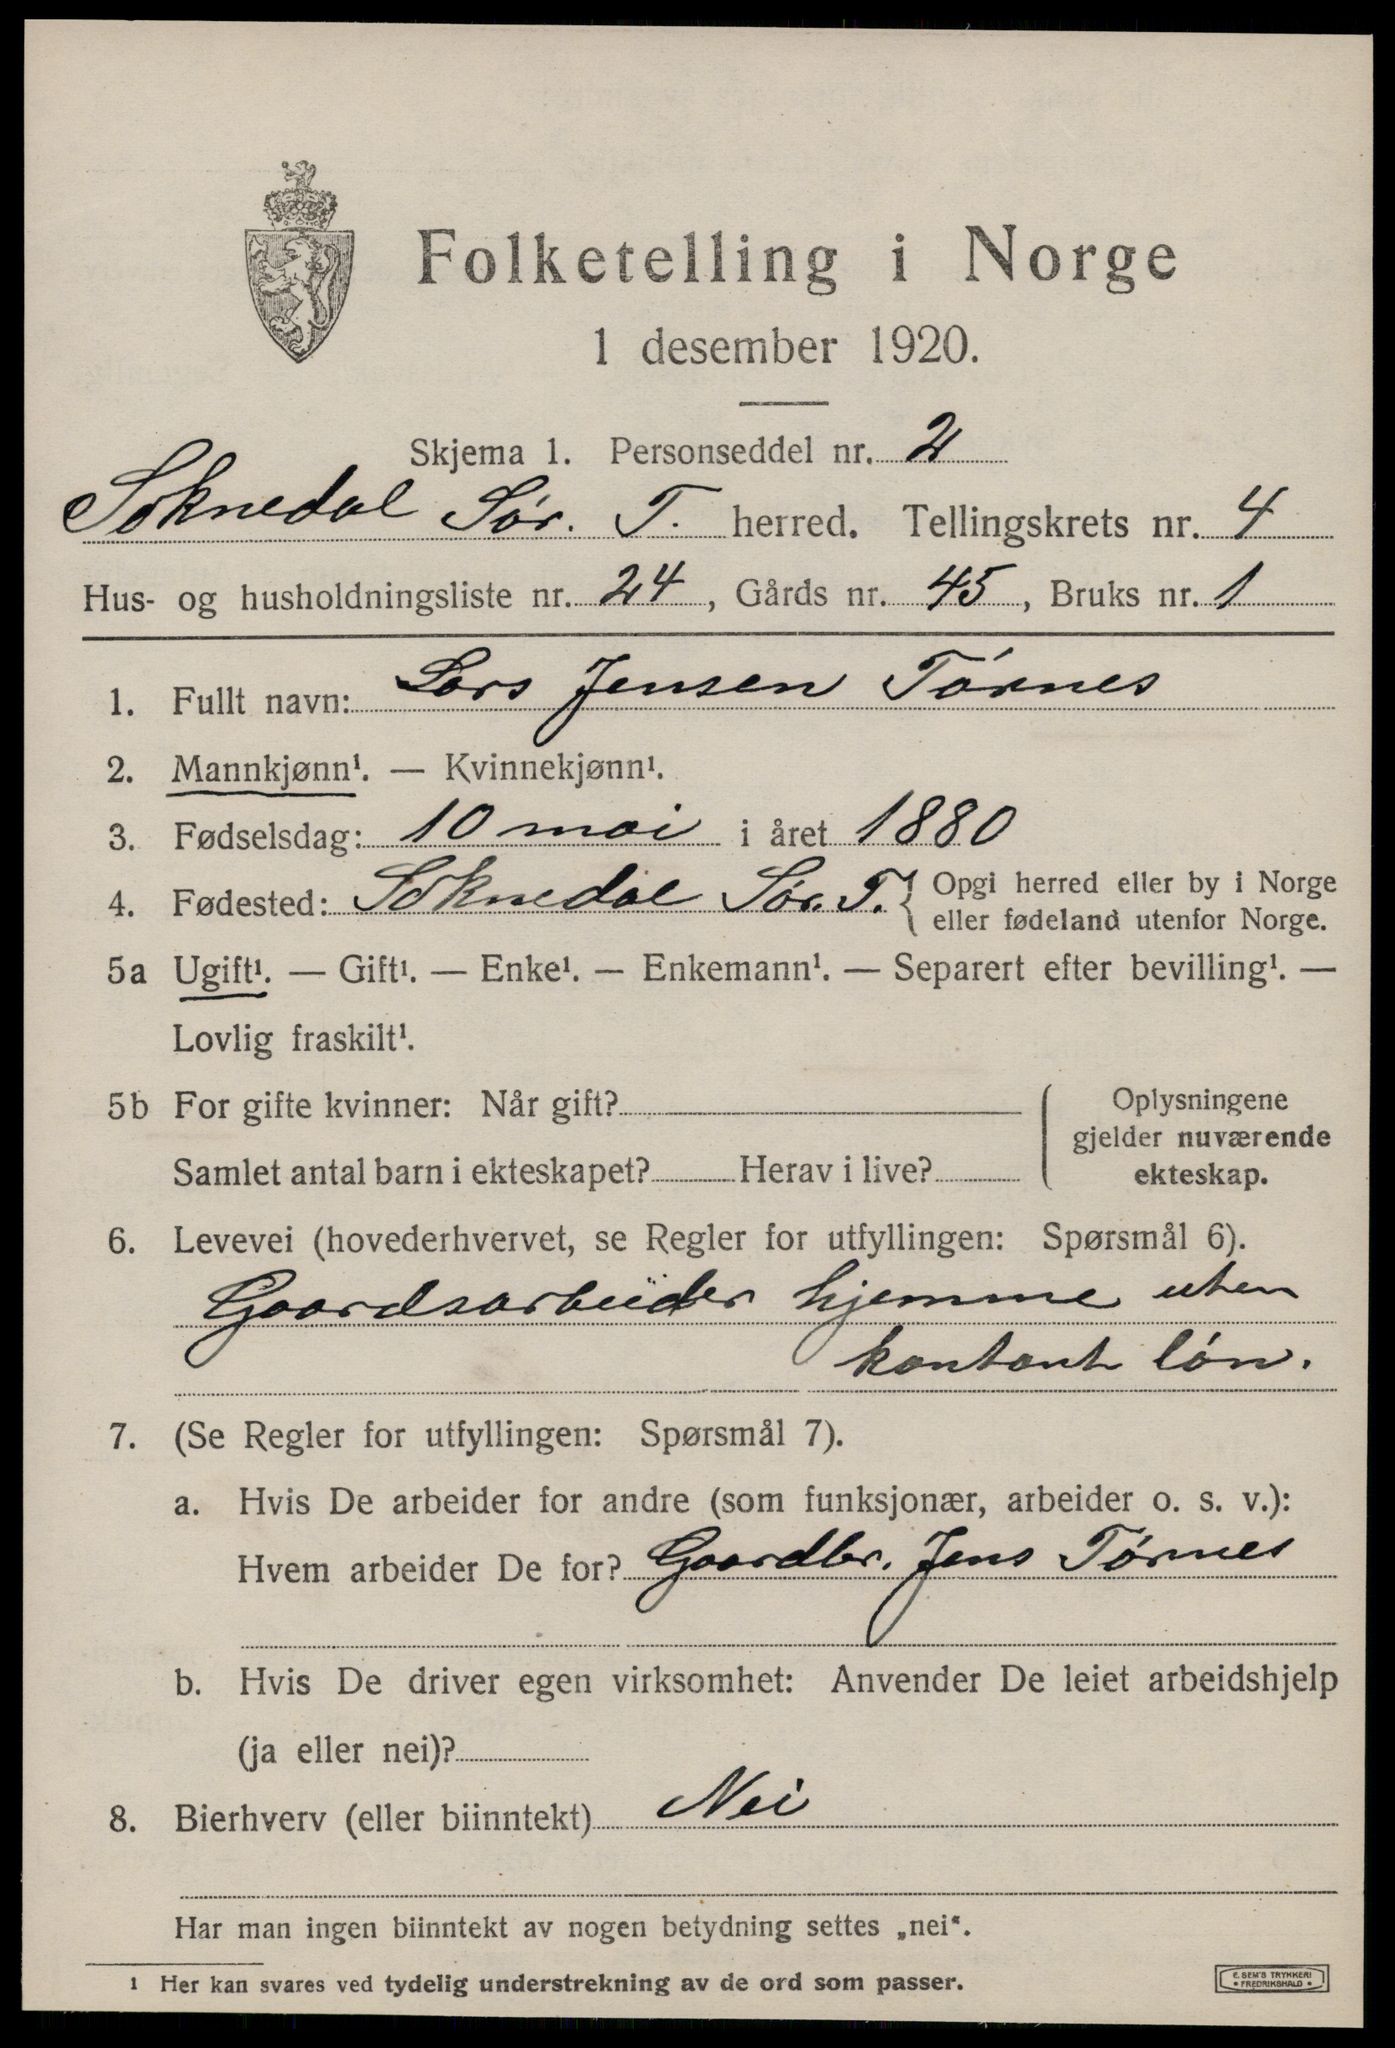 Folketelling i Norge
1 desember 1920.
Skjema 1. Personseddel nr. 2
Soknedal Sør. T. herred. Tellingskrets nr. 4
Hus- og husholdningsliste nr. 24, Gårds nr. 45, Bruks nr. 1
1. Fullt navn: Lars Jensen Tørnes
2. Mannkjønn¹. — Kvinnekjønn¹.
3. Fødselsdag: 10 mai i året 1880
4. Fødested: Soknedal Sør. T. { Opgi herred eller by i Norge
eller fødeland utenfor Norge.
5a Ugift¹. — Gift¹. — Enke¹. — Enkemann¹. — Separert efter bevilling¹. —
Lovlig fraskilt¹.
5b For gifte kvinner: Når gift?
Samlet antal barn i ekteskapet? Herav i live?
Oplysningene
gjelder nuværende
ekteskap.
6. Levevei (hovederhvervet, se Regler for utfyllingen: Spørsmål 6).
Gaardsarbeider hjemme uten
kontant løn.
7. (Se Regler for utfyllingen: Spørsmål 7).
a. Hvis De arbeider for andre (som funksjonær, arbeider o. s. v.):
Hvem arbeider De for? Gaardbr. Jens Tørnes
b. Hvis De driver egen virksomhet: Anvender De leiet arbeidshjelp
(ja eller nei)?
8. Bierhverv (eller biinntekt) Nei
Har man ingen biinntekt av nogen betydning settes „nei“.
¹ Her kan svares ved tydelig understrekning av de ord som passer.
E. SEM'S TRYKKERI
• FREDRIKSHALD •